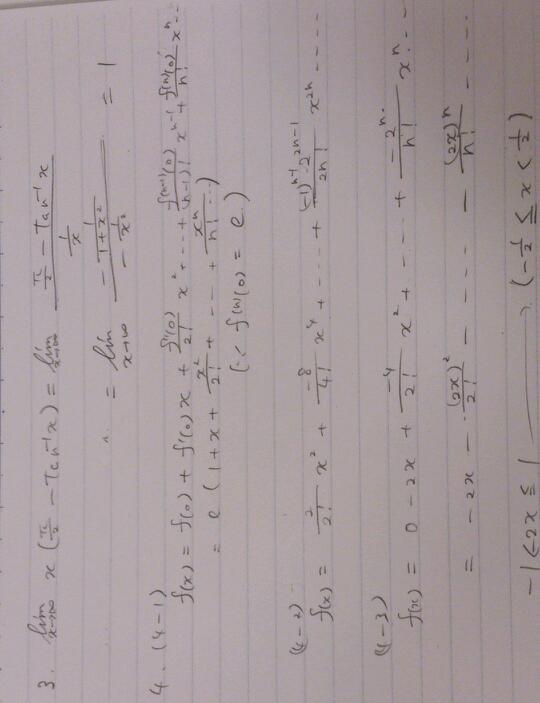 3. lim x→∞ x (π/2 − Tan⁻¹x) = lim x→∞ (π/2 − Tan⁻¹x) / (1/x)
= lim x→∞ (− 1/(1+x²)) / (− 1/x²) = 1
4. (4-1)
f(x) = f(0) + f'(0)x + f''(0)/2! x² + ... + f⁽ⁿ⁻¹⁾(0)/(n-1)! xⁿ⁻¹ + f⁽ⁿ⁾(0)/n! xⁿ ...
= e (1 + x + x²/2! + ... + xⁿ/n! ...)
(∵ f⁽ⁿ⁾(0) = e)
(4-2)
f(x) = 2/2! x² + −8/4! x⁴ + ... + (−1)ⁿ⁻¹·2²ⁿ⁻¹/2n! x²ⁿ ....
(4-3)
f(x) = 0 − 2x + −4/2! x² + ... + −2ⁿ/n! xⁿ ...
= −2x − (2x)²/2! − ... − (2x)ⁿ/n! − ....
−1 < −2x ≦ 1 (−1/2 ≦ x < 1/2)